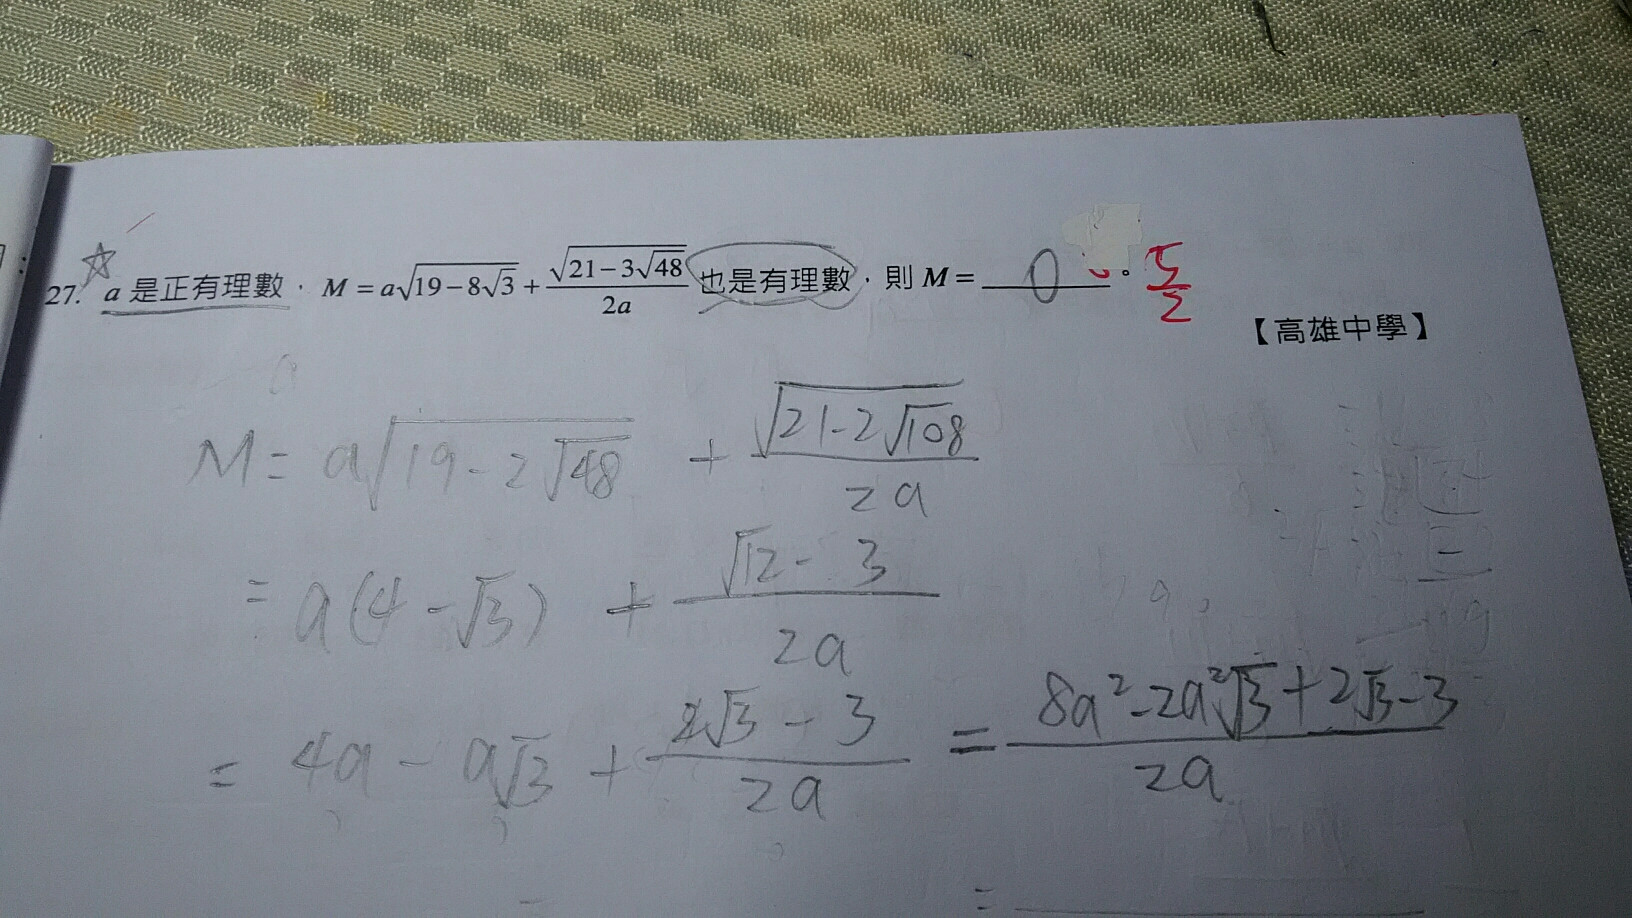 27. a 是正有理數，M = a√(19−8√3) + √(21−3√48)/2a 也是有理數，則 M = 0 。 5/2
【高雄中學】
M = a√(19−2√48) + √(21−2√108)/2a
= a(4−√3) + (√12−3)/2a
= 4a − a√3 + (2√3−3)/2a = (8a²−2a²√3+2√3−3)/2a